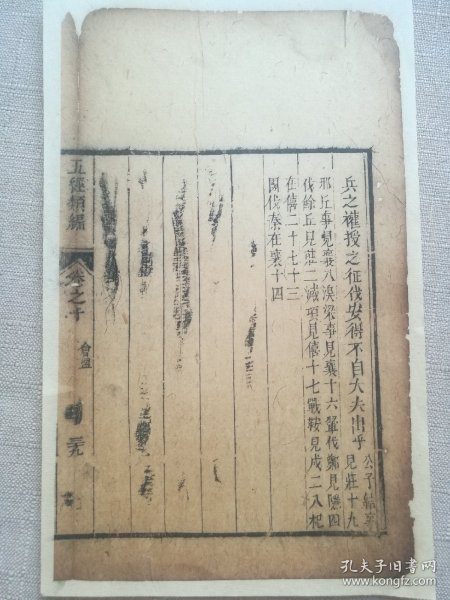 兵之權授之征伐安得不自大夫出乎
公子結事
見莊十九
邢丘事見襄八溴梁事見襄十六翬伐鄭見隱四
伐餘丘見莊二滅項見僖十七戰鞍見成二入杞
在僖二十七十三
國伐秦在襄十四
五經類編
卷之十
會盟
孔夫子旧书网
www.kongfz.com